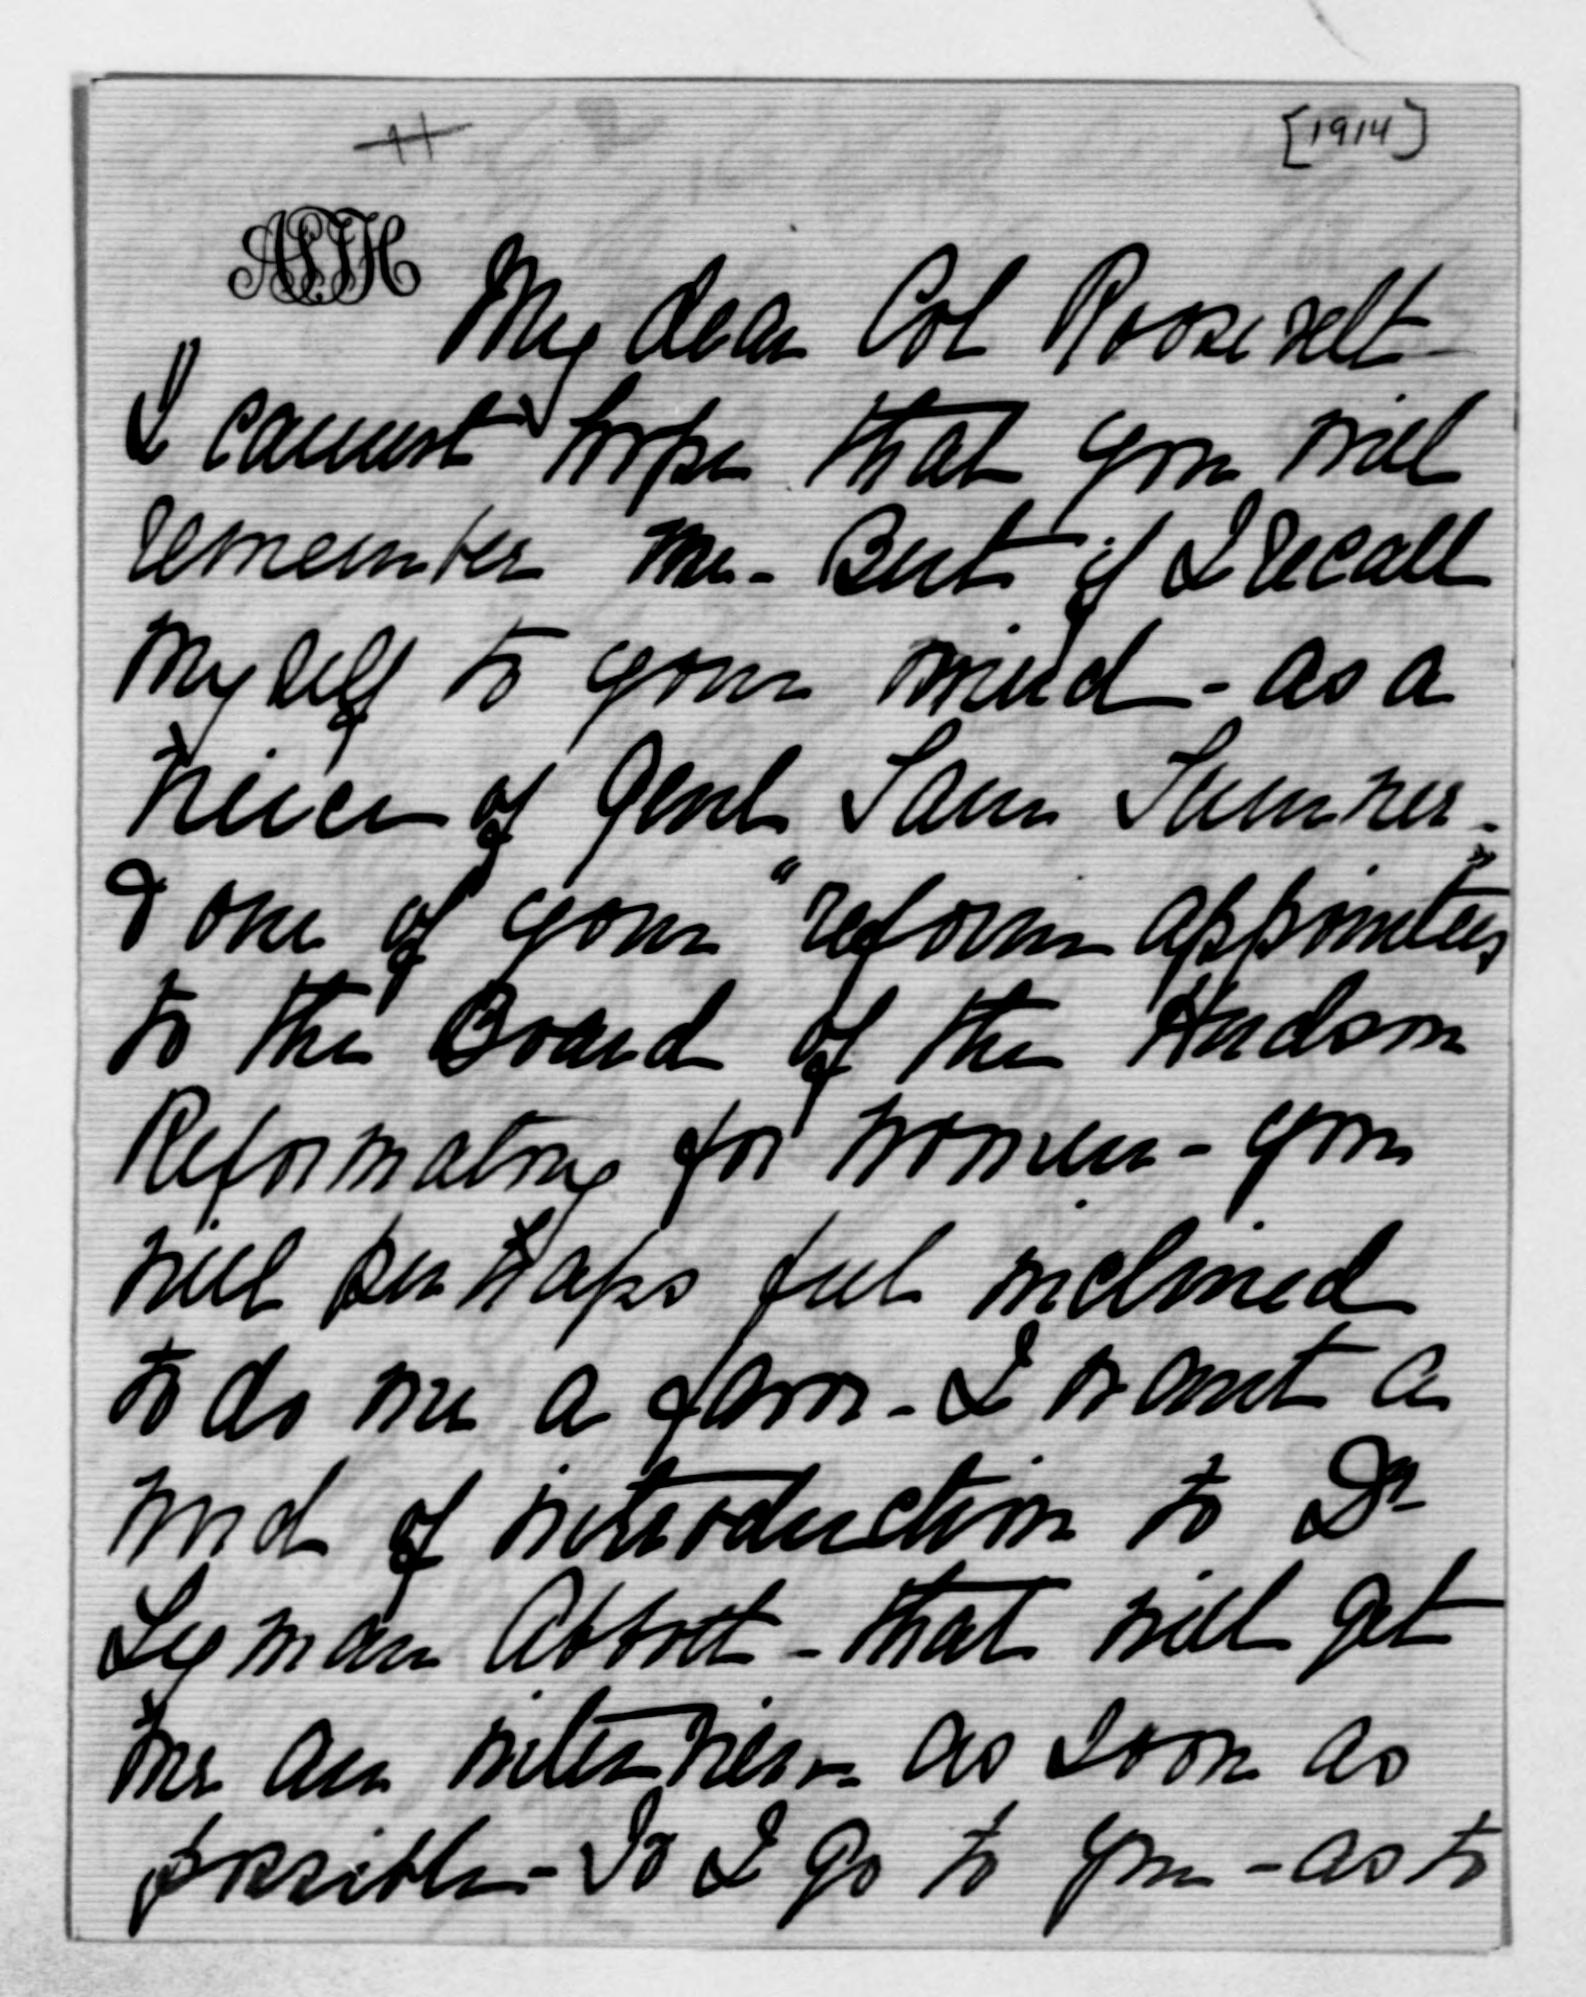 [1914]
My dear Col Roosevelt -
I cannot hope that you will
remember me - But if I recall
myself to your mind - as a
niece of Genl Sam Sumner -
& one of your "reform appointees"
to the Board of the Hudson
Reformatory for women - you
will perhaps feel inclined
to do me a favor - I want a
word of introduction to Dr
Lyman Abbott - that will get
me an interview - as soon as
possible - So I go to you - as to